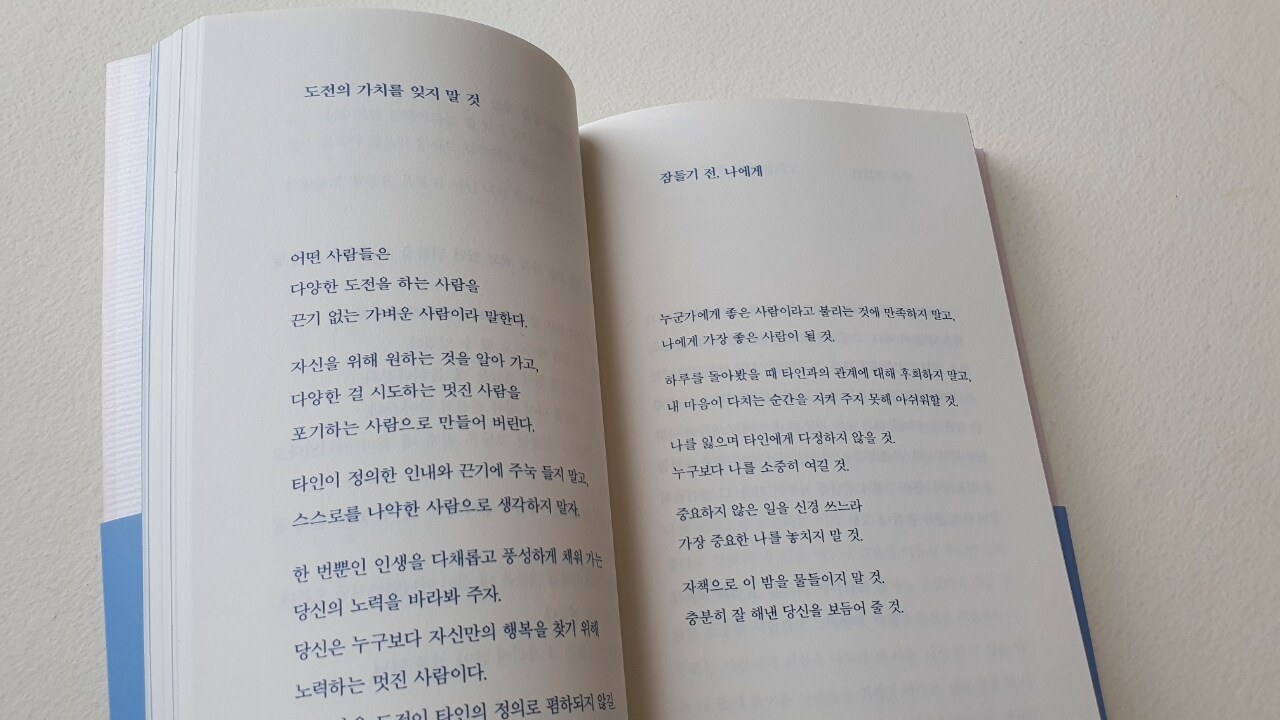 도전의 가치를 잊지 말 것
어떤 사람들은
다양한 도전을 하는 사람을
끈기 없는 가벼운 사람이라 말한다.
자신을 위해 원하는 것을 알아 가고,
다양한 걸 시도하는 멋진 사람을
포기하는 사람으로 만들어 버린다.
타인이 정의한 인내와 끈기에 주눅 들지 말고,
스스로를 나약한 사람으로 생각하지 말자.
한 번뿐인 인생을 다채롭고 풍성하게 채워 가는
당신의 노력을 바라봐 주자.
당신은 누구보다 자신만의 행복을 찾기 위해
노력하는 멋진 사람이다.
도전이 타인의 정의로 폄하되지 않길
잠들기 전, 나에게
누군가에게 좋은 사람이라고 불리는 것에 만족하지 말고,
나에게 가장 좋은 사람이 될 것.
하루를 돌아봤을 때 타인과의 관계에 대해 후회하지 말고,
내 마음이 다치는 순간을 지켜 주지 못해 아쉬워할 것.
나를 잃으며 타인에게 다정하지 않을 것.
누구보다 나를 소중히 여길 것.
중요하지 않은 일을 신경 쓰느라
가장 중요한 나를 놓치지 말 것.
자책으로 이 밤을 물들이지 말 것.
충분히 잘 해낸 당신을 보듬어 줄 것.